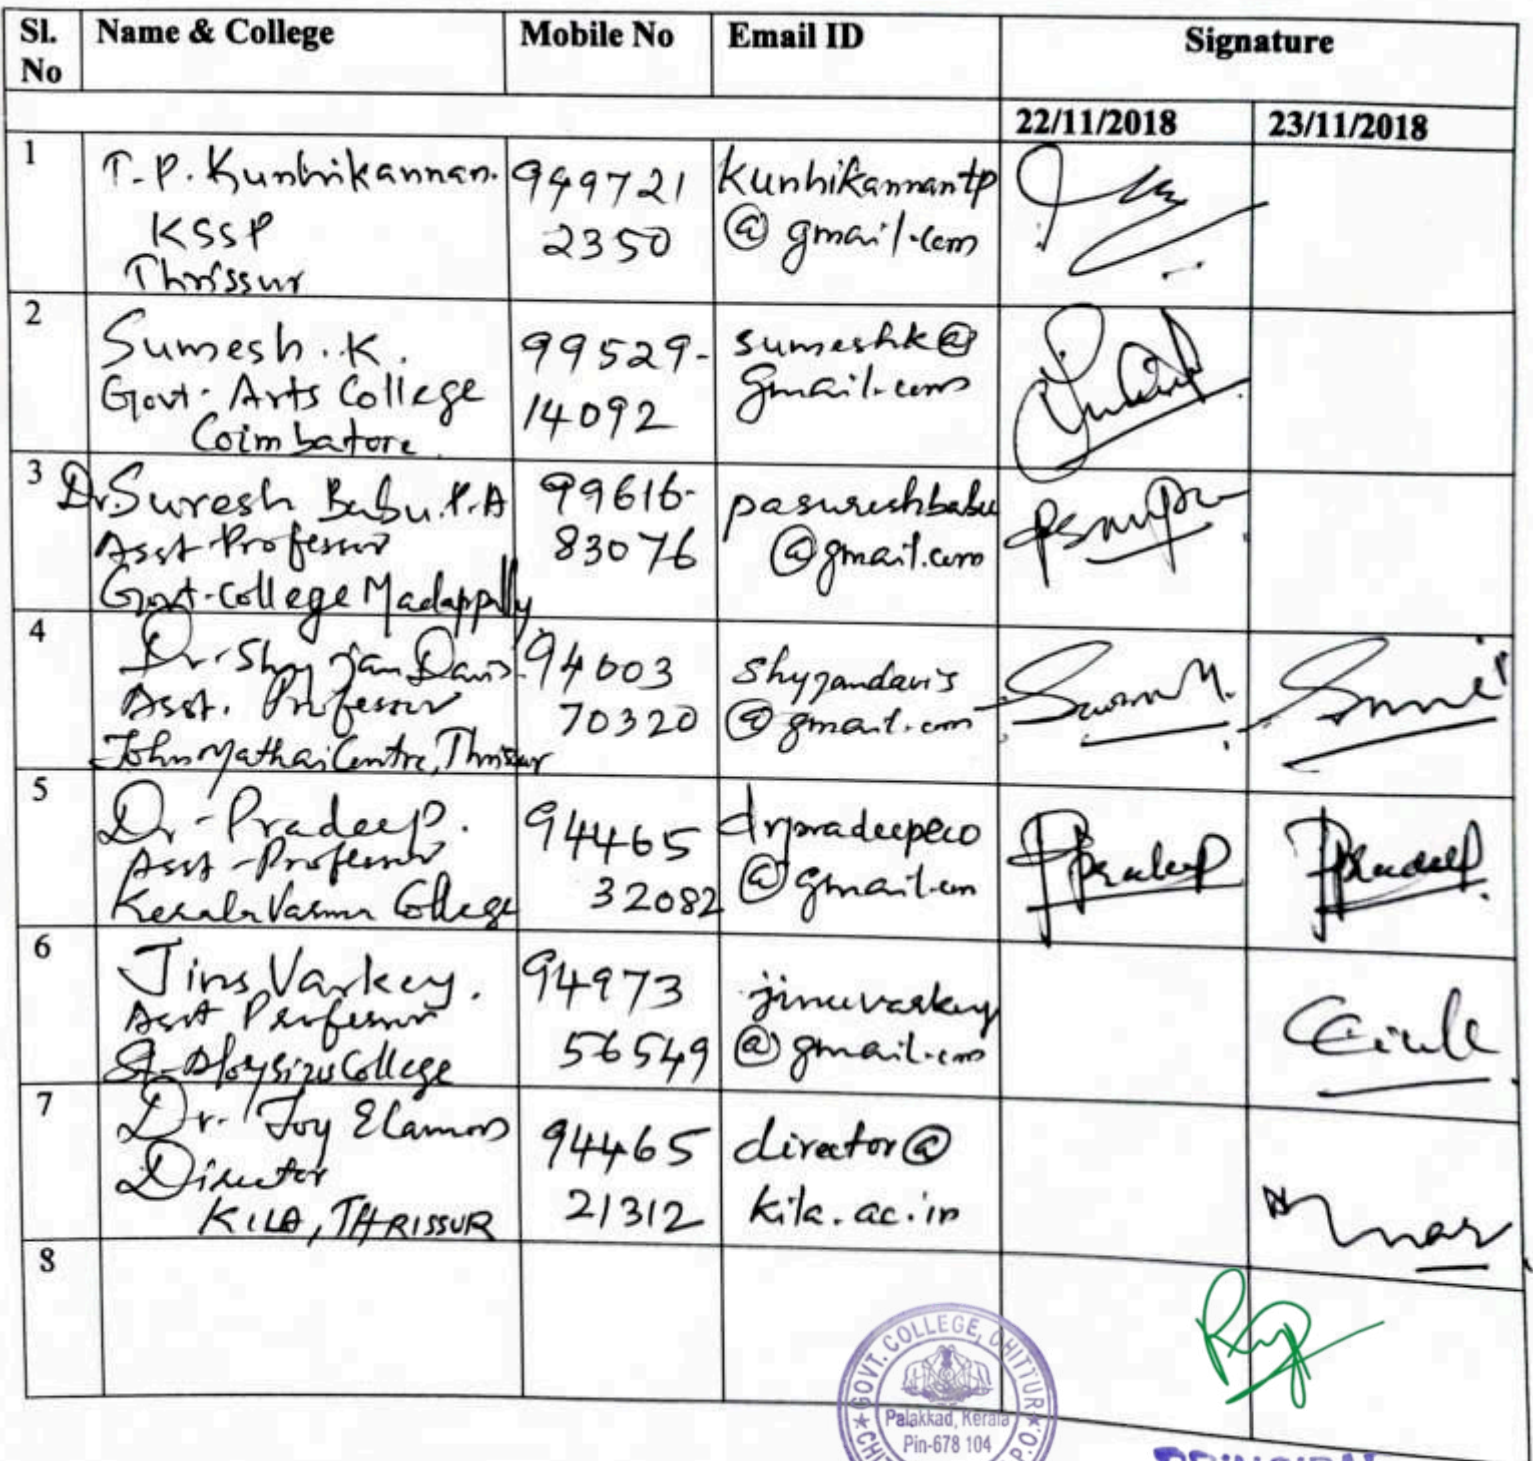 Sl. No Name & College Mobile No Email ID Signature
22/11/2018 23/11/2018
1
T. P. Kunhikannan.
KSSP
Thrissur
949721
2350
kunhikannantp
@gmail.com
2
Sumesh. K.
Govt. Arts College
Coimbatore
99529-
14092
sumeshk@
gmail.com
3
Dr. Suresh Babu. P. A
Asst Professor
Govt. College Madappally
99616-
83076
pasureshbabu
@gmail.com
4
Dr. Shyjan Davis
Asst. Professor
John Mathai Centre, Thrissur
94003
70320
shyjandavis
@gmail.com
5
Dr. Pradeep.
Asst-Professor
Kerala Varma College
94465
32082
drpradeepeco
@gmail.com
Ppradeep
Ppradeep
6
Jins Varkey.
Asst Professor
St. Aloysius College
94973
56549
jinuvarkey
@gmail.com
7
Dr. Joy Elamon
Director
KILA, THRISSUR
94465
21312
director@
kila.ac.in
8
GOVT. COLLEGE, CHITTUR
Palakkad, Kerala
Pin-678 104
P.O.
PRINCIPAL